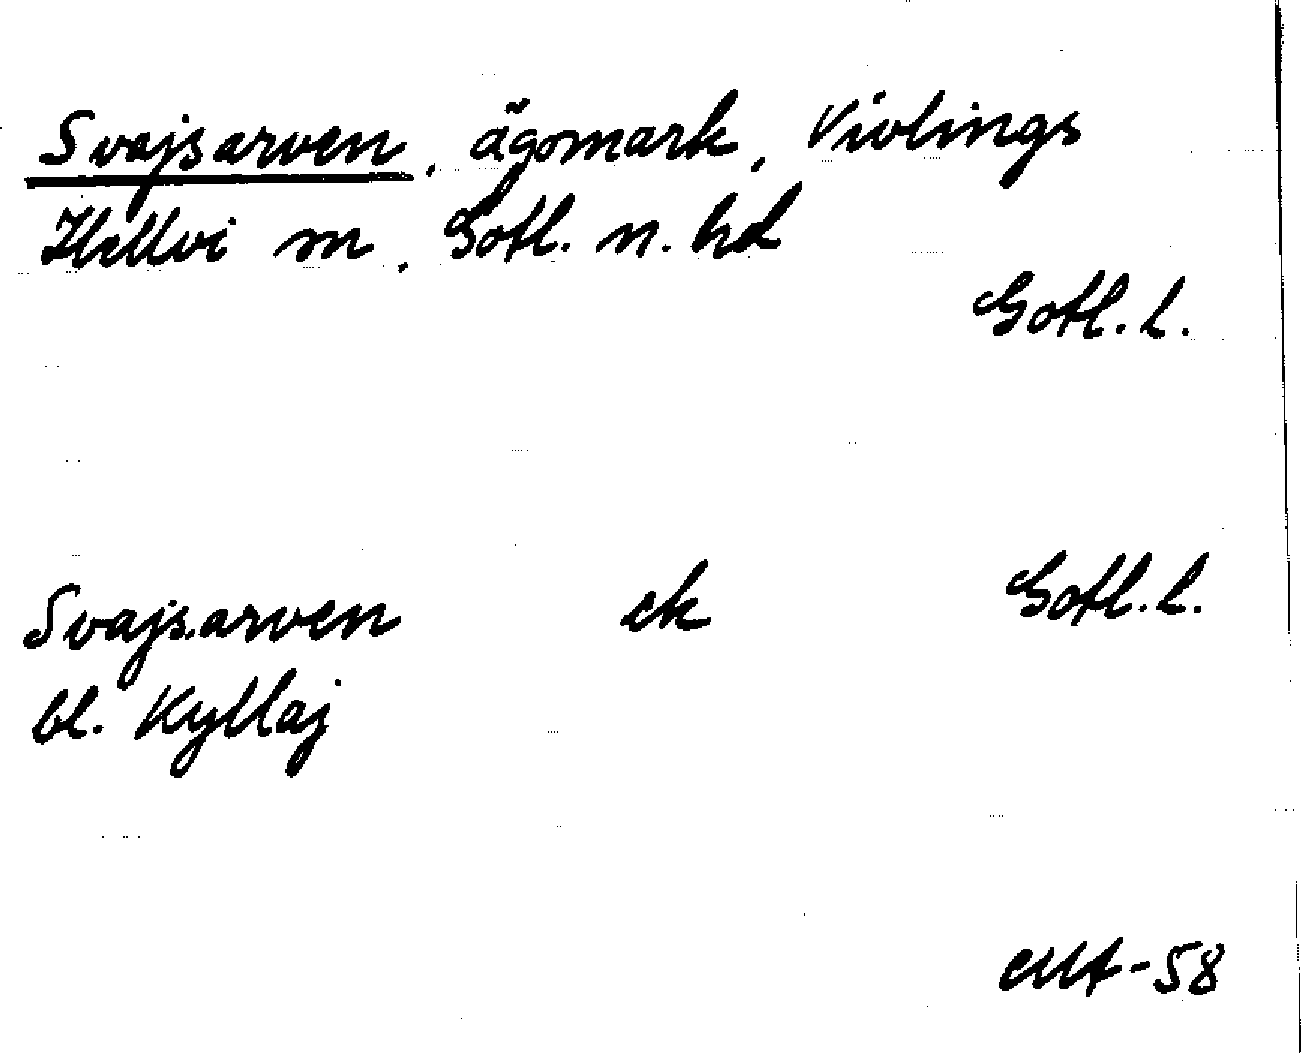 Svajsarven, ägomark, Vivlings
Hellvi sn, Gotl. n. hd
Gotl. l.
Svajsarven ek Gotl. l.
bl. Kyllaj
-58